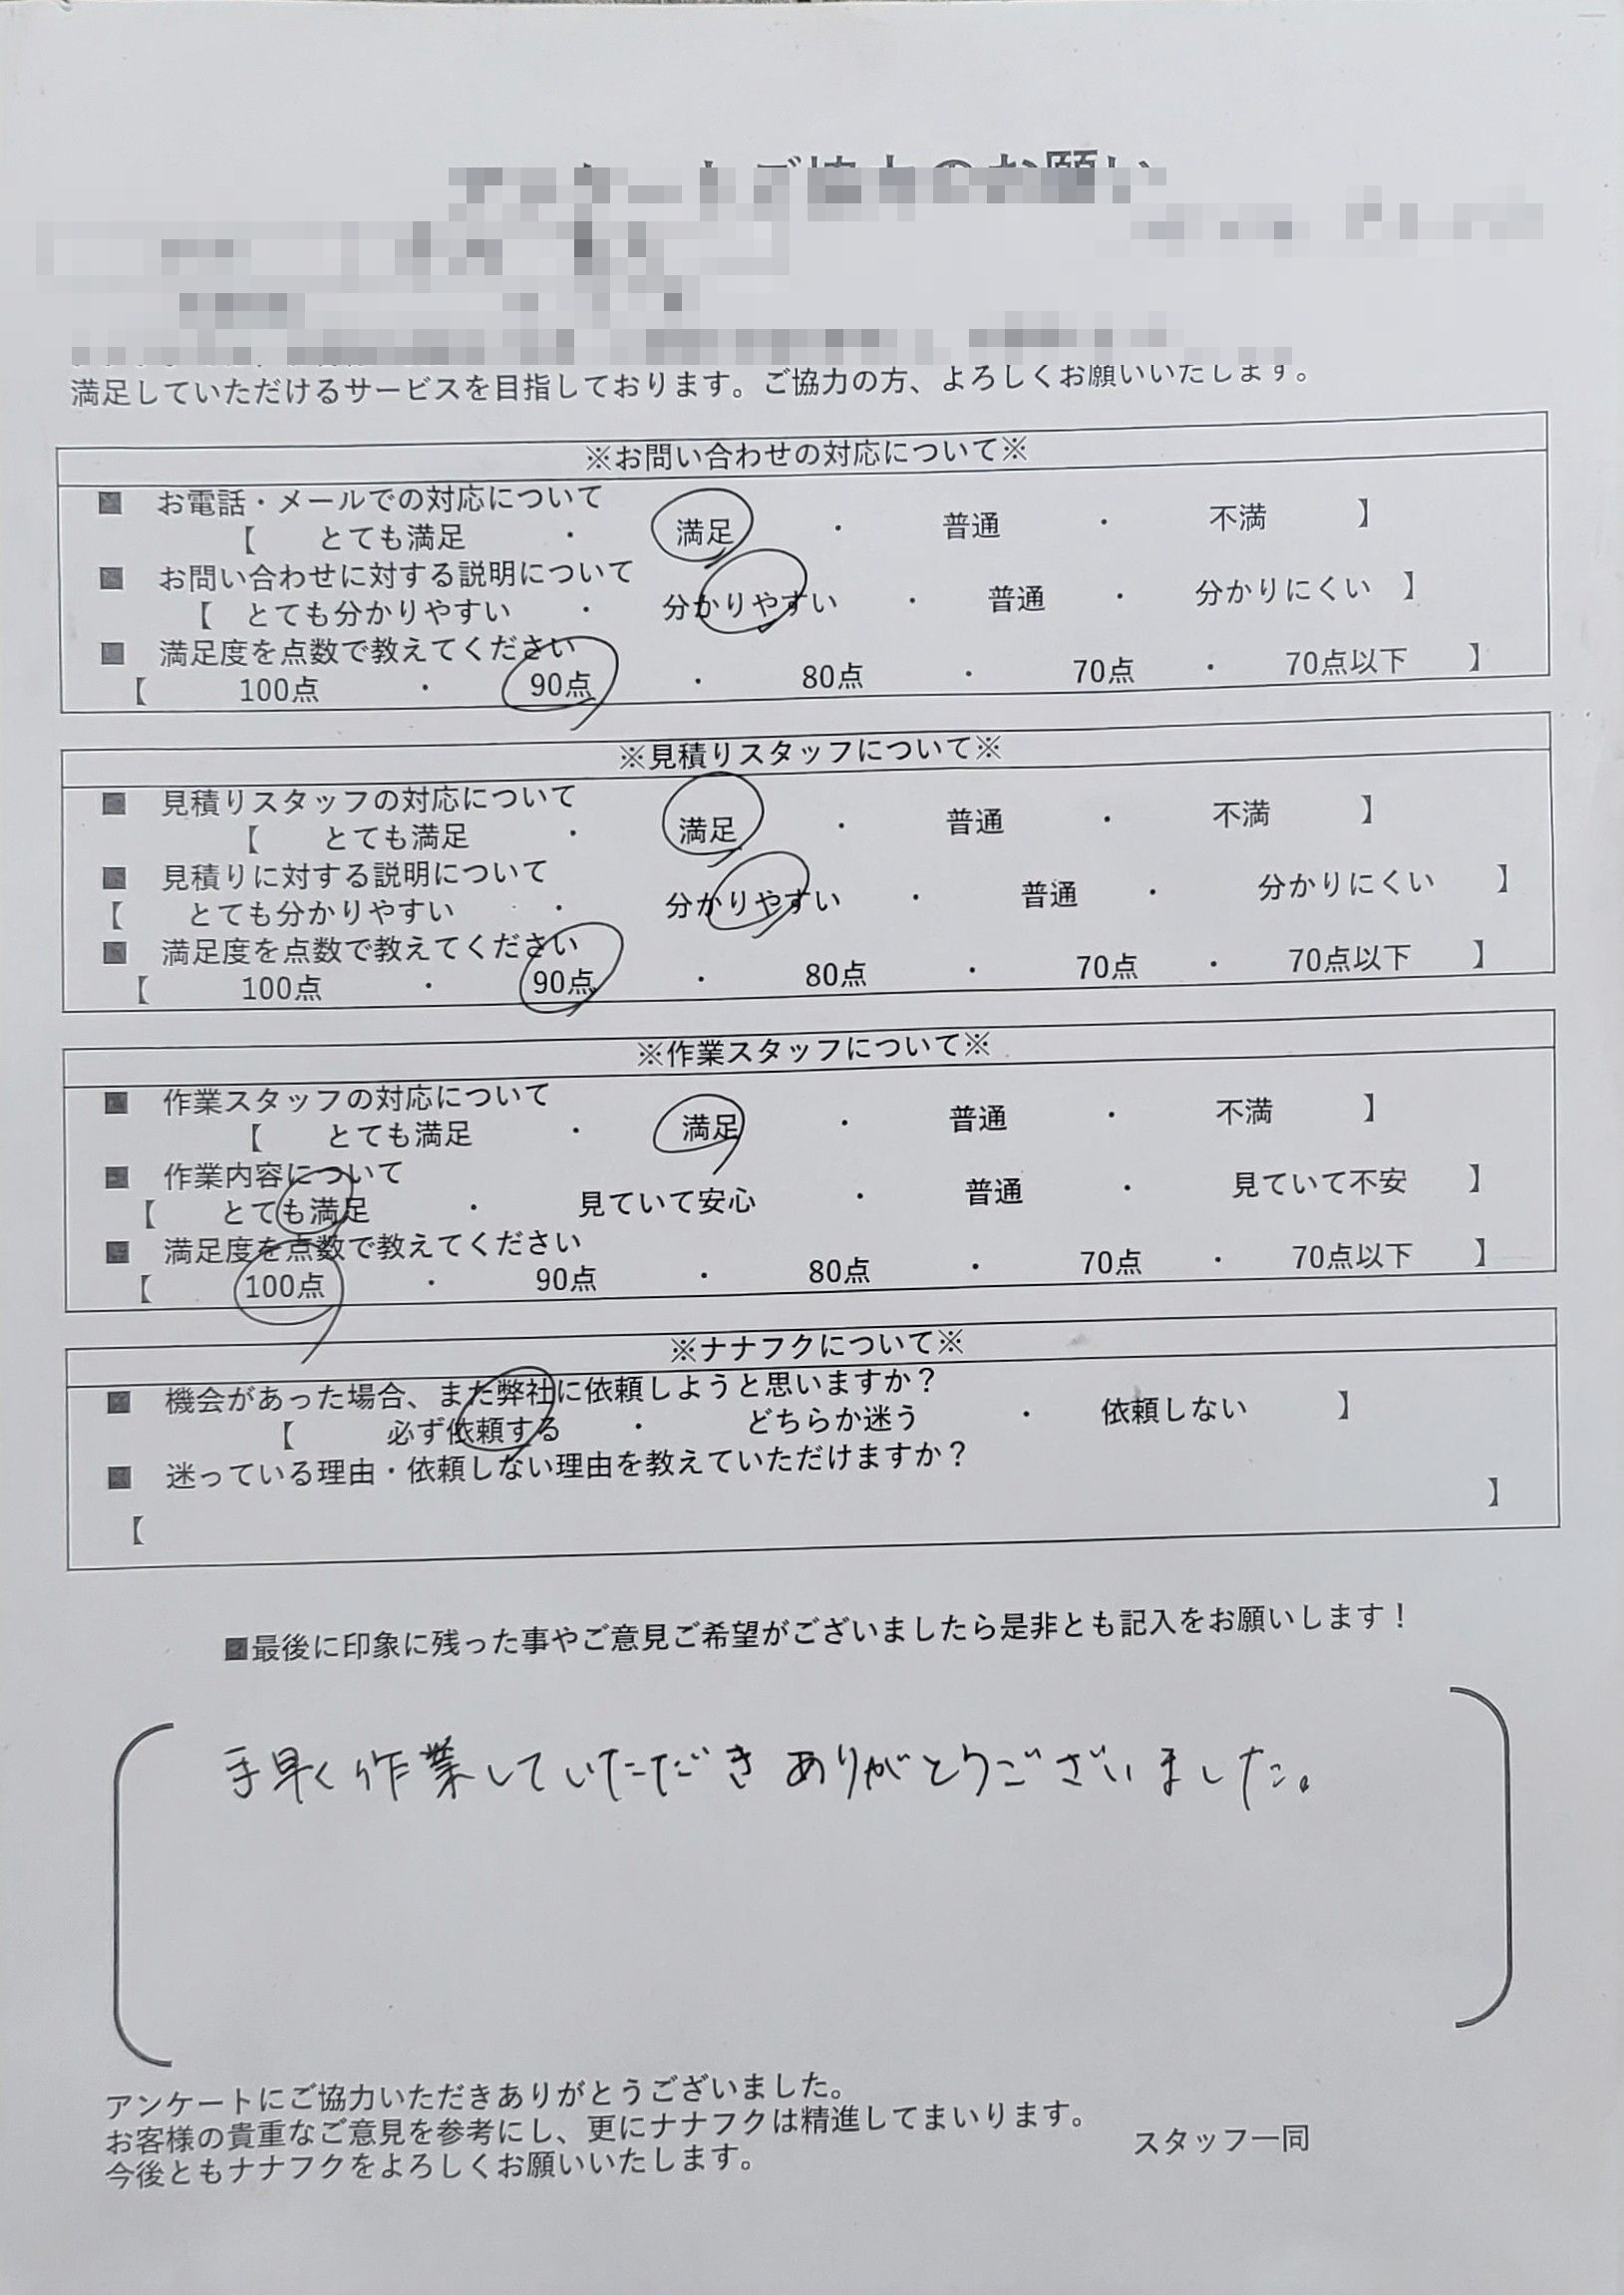 満足していただけるサービスを目指しております。ご協力の方、よろしくお願いいたします。
※お問い合わせの対応について※
■ お電話・メールでの対応について
【 とても満足 ・ 満足 ・ 普通 ・ 不満 】
■ お問い合わせに対する説明について
【 とても分かりやすい ・ 分かりやすい ・ 普通 ・ 分かりにくい 】
■ 満足度を点数で教えてください
【 100点 ・ 90点 ・ 80点 ・ 70点 ・ 70点以下 】
※見積りスタッフについて※
■ 見積りスタッフの対応について
【 とても満足 ・ 満足 ・ 普通 ・ 不満 】
■ 見積りに対する説明について
【 とても分かりやすい ・ 分かりやすい ・ 普通 ・ 分かりにくい 】
■ 満足度を点数で教えてください
【 100点 ・ 90点 ・ 80点 ・ 70点 ・ 70点以下 】
※作業スタッフについて※
■ 作業スタッフの対応について
【 とても満足 ・ 満足 ・ 普通 ・ 不満 】
■ 作業内容について
【 とても満足 ・ 見ていて安心 ・ 普通 ・ 見ていて不安 】
■ 満足度を点数で教えてください
【 100点 ・ 90点 ・ 80点 ・ 70点 ・ 70点以下 】
※ナナフクについて※
■ 機会があった場合、また弊社に依頼しようと思いますか？
【 必ず依頼する ・ どちらか迷う ・ 依頼しない 】
■ 迷っている理由・依頼しない理由を教えていただけますか？
【 】
■最後に印象に残った事やご意見ご希望がございましたら是非とも記入をお願いします！
手早く作業していただき ありがとうございました。
アンケートにご協力いただきありがとうございました。
お客様の貴重なご意見を参考にし、更にナナフクは精進してまいります。
今後ともナナフクをよろしくお願いいたします。
スタッフ一同